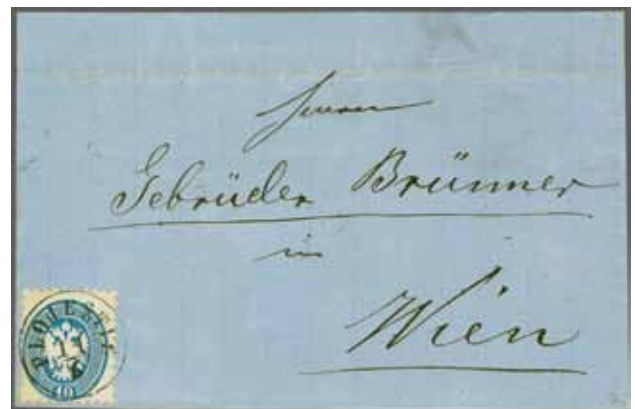 Herren
Gebrüder Brünner
in
Wien
PLOIESTI
17
6
10